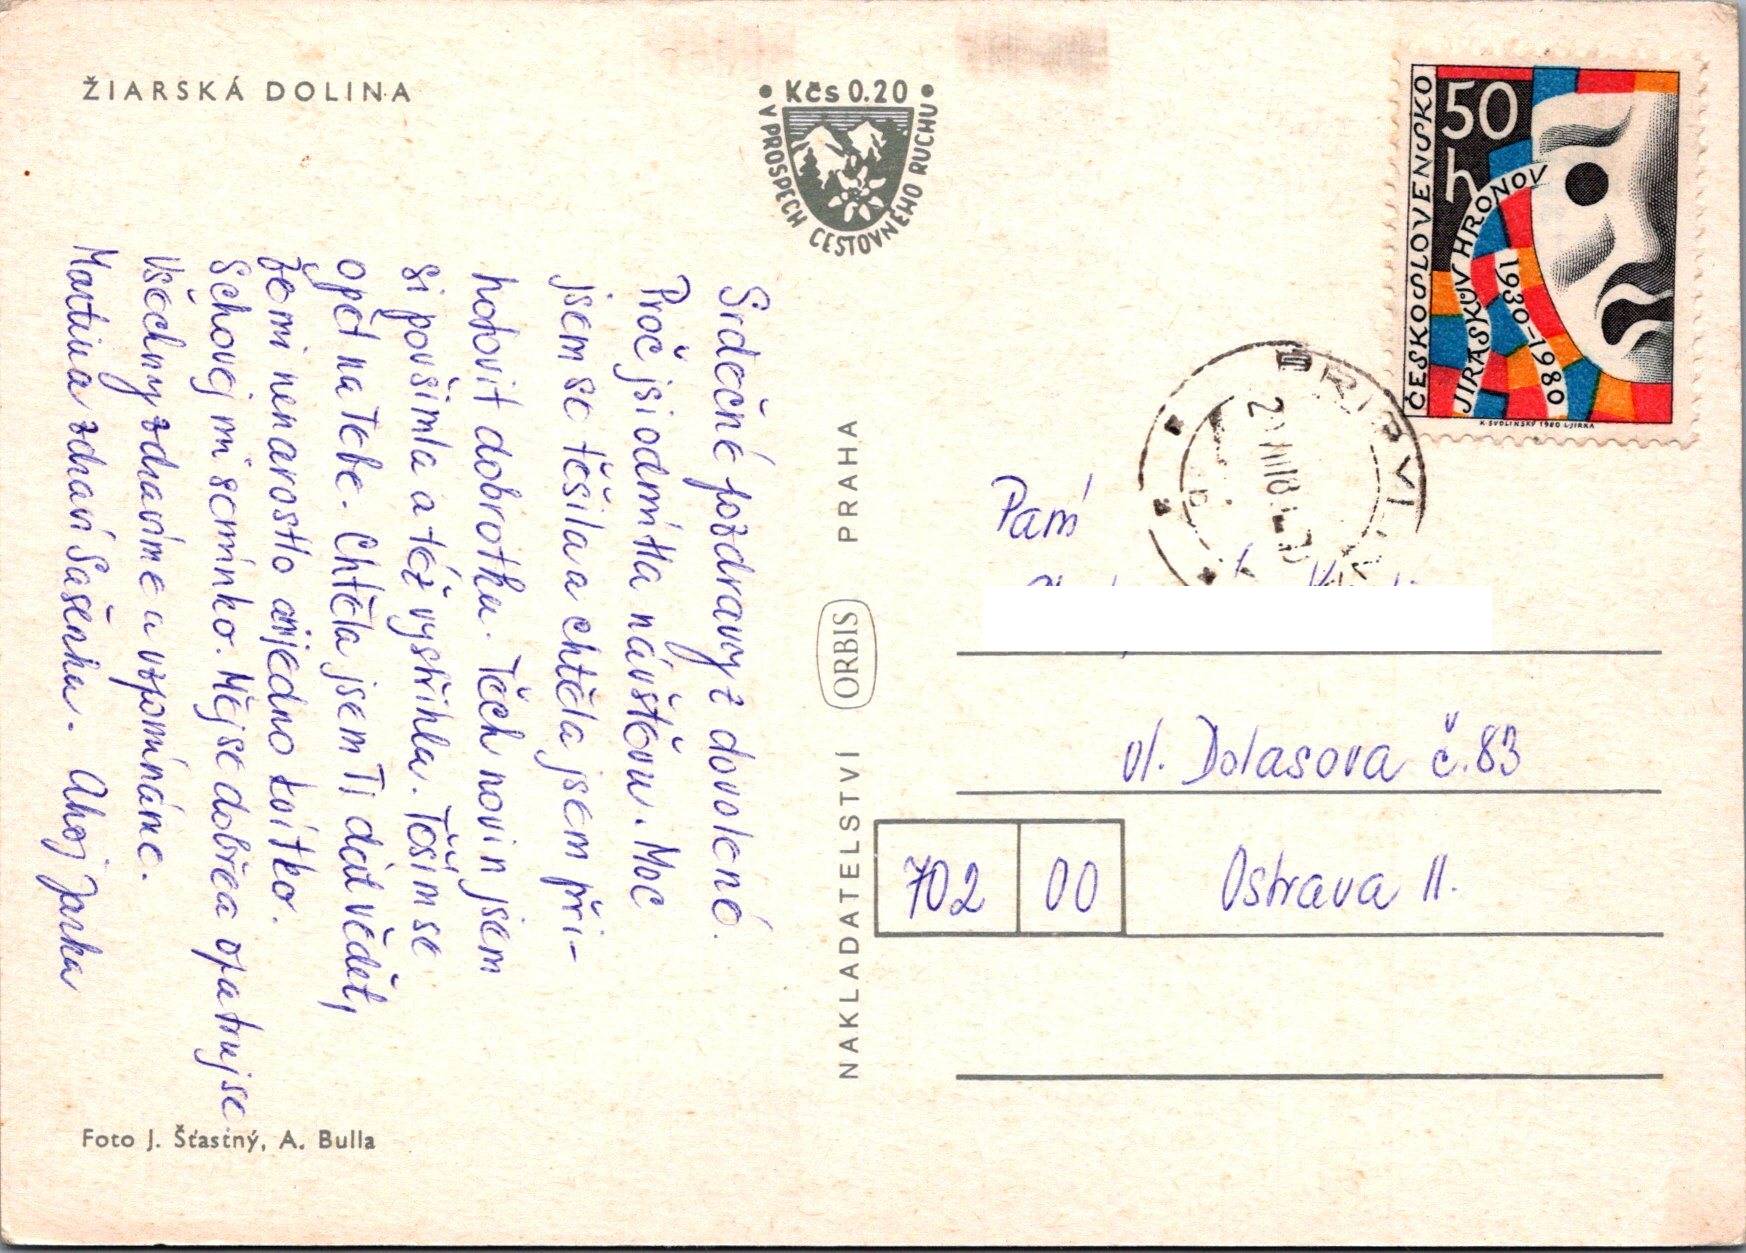 ŽIARSKÁ DOLINA
• Kčs 0.20 •
V PROSPECH CESTOVNÉHO RUCHU
ČESKOSLOVENSKO
50
h
JIRÁSKŮV HRONOV
1930–1980
K. SVOLINSKÝ 1980 L. JIRKA
Srdečné pozdravy z dovolené.
Proč jsi odmítla návštěvu. Moc
jsem se těšila a chtěla jsem při-
hotovit dobrotku. Těch novin jsem
si povšimla a též vystřihla. Těším se
opět na Tebe. Chtěla jsem Ti dát vědět,
že mi nenarostlo anijedno kvítko.
Schovej mi semínko. Měj se dobře a opatruj se
všechny zdravíme a vzpomínáme.
Martina zdraví Sašenku. Ahoj Jarka
NAKLADATELSTVÍ ORBIS PRAHA
Paní
ul. Dolasova č. 83
702 00 Ostrava II.
Foto J. Šťastný, A. Bulla